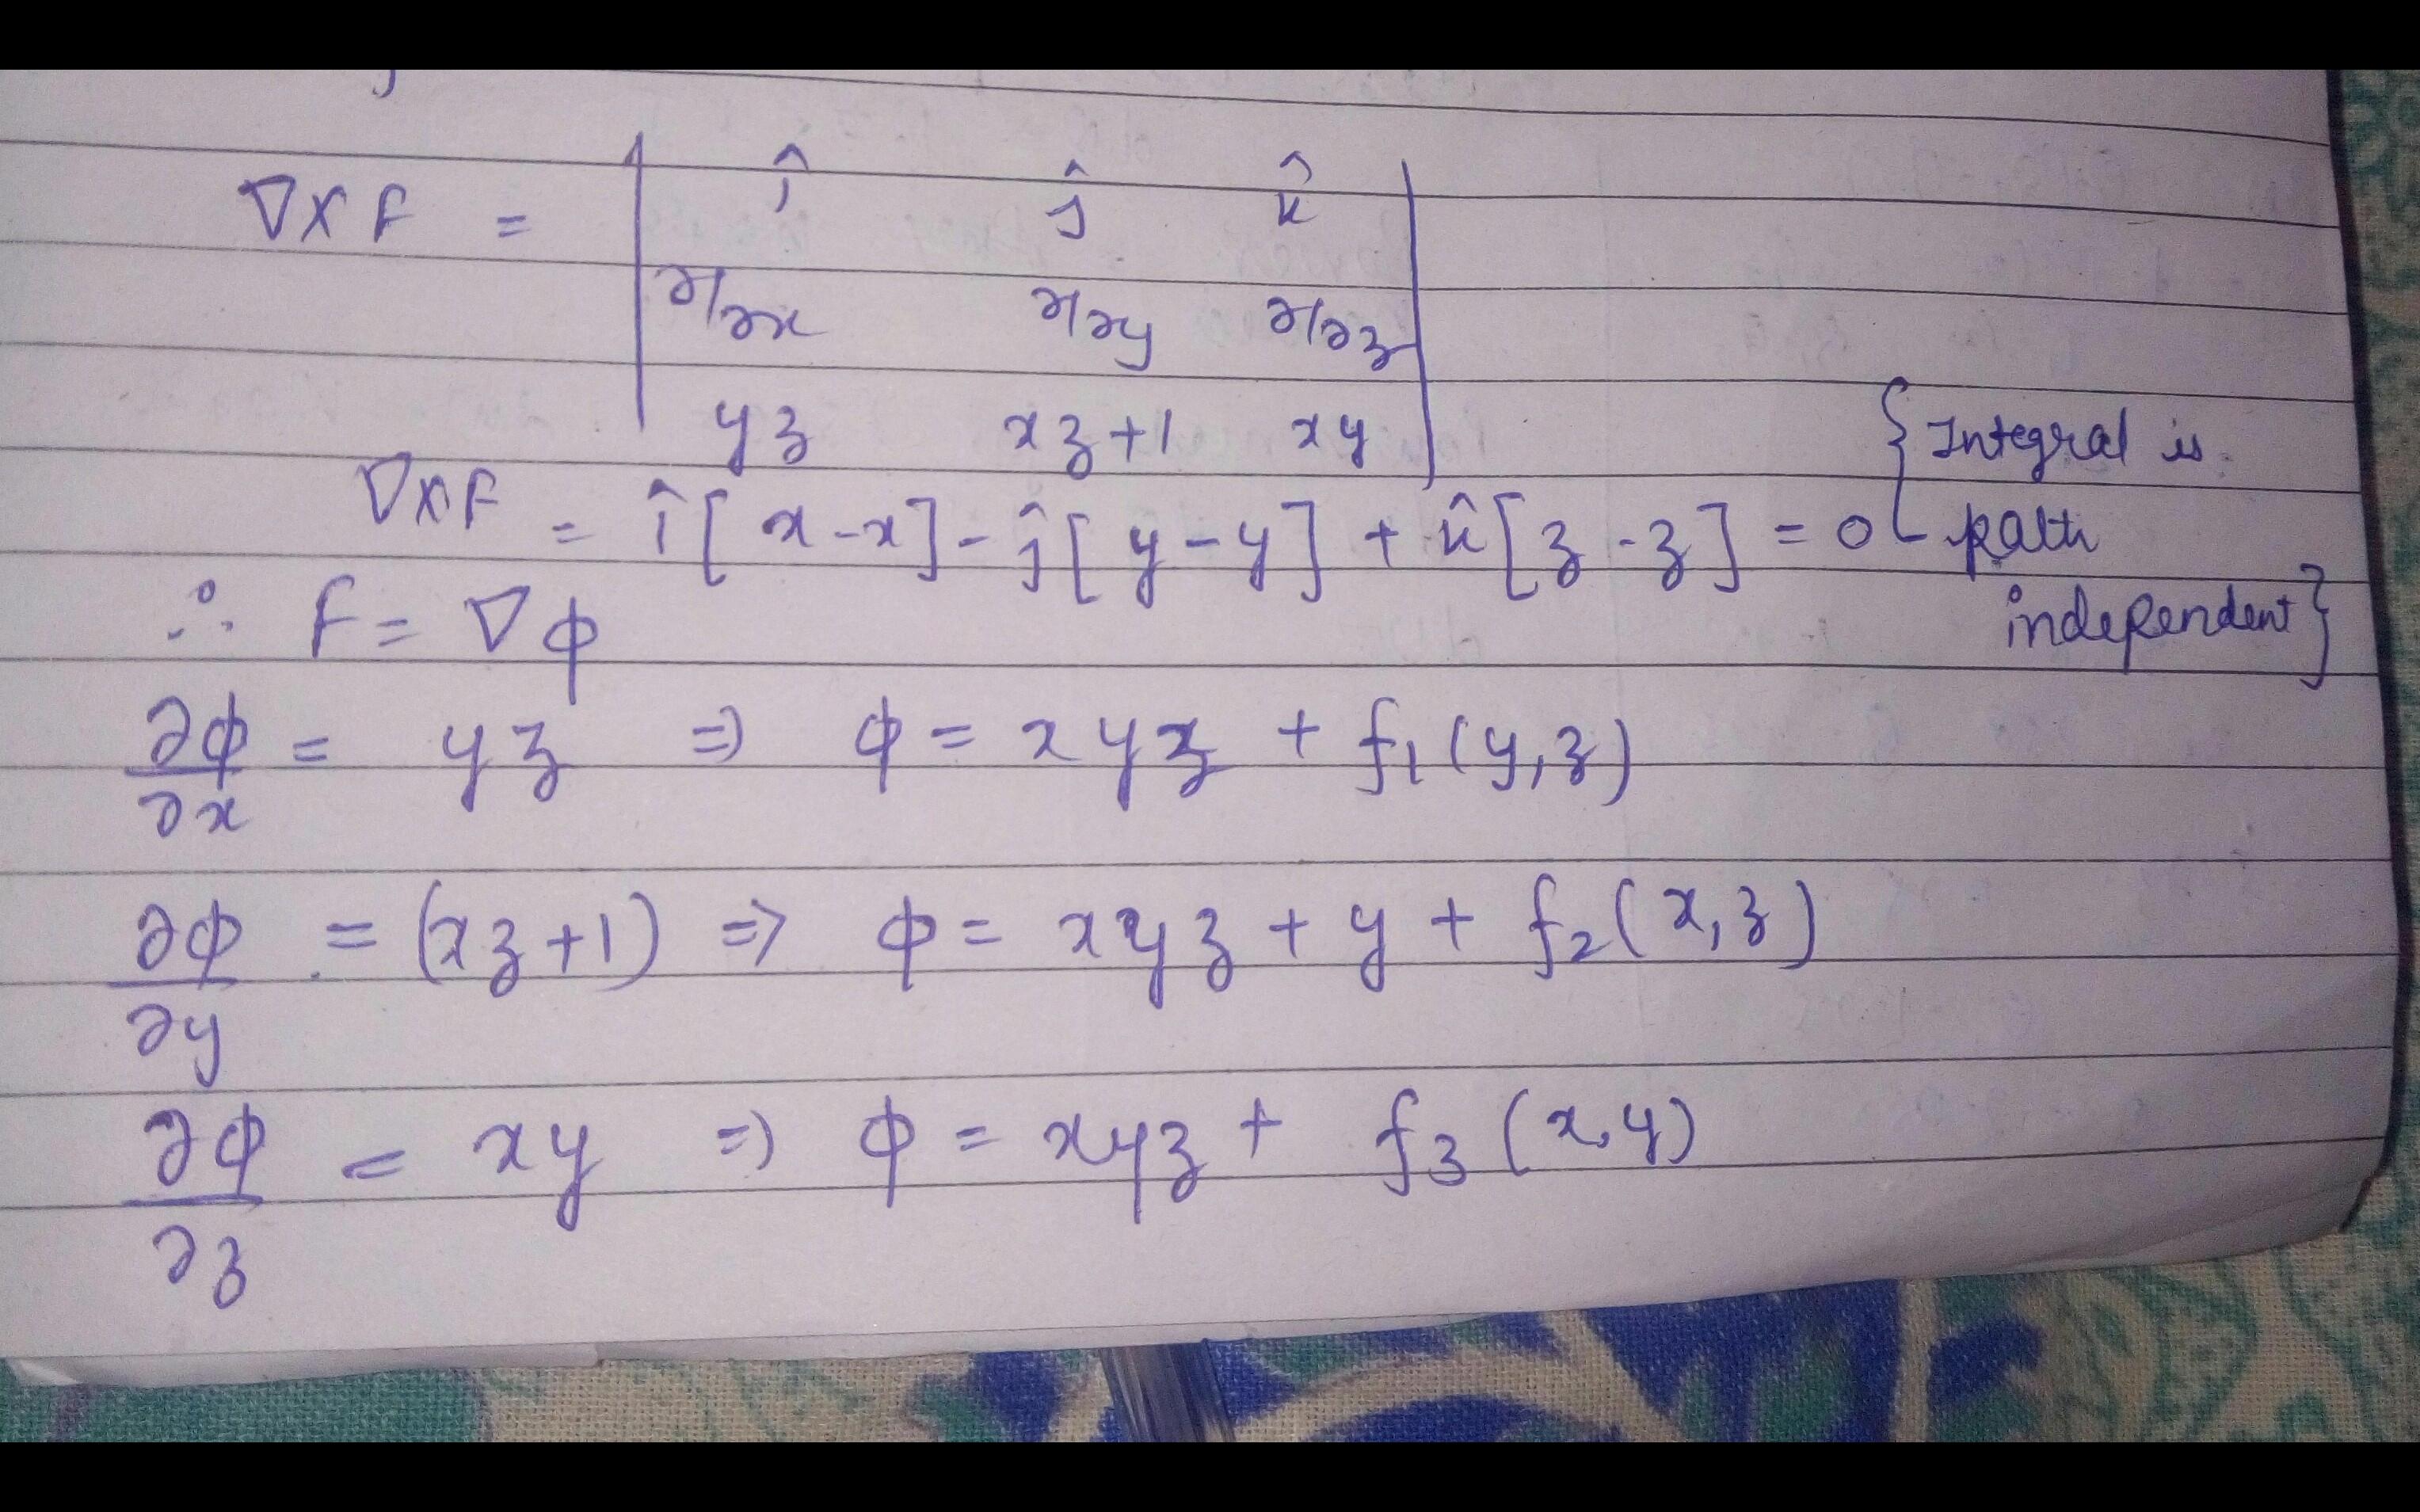 ∇×F = | î ĵ k̂ |
| ∂/∂x ∂/∂y ∂/∂z |
| yz xz+1 xy |
∇×F = î[x-x] - ĵ[y-y] + k̂[z-z] = 0 {Integral is path independent}
∴ F = ∇ϕ
∂ϕ/∂x = yz ⇒ ϕ = xyz + f₁(y,z)
∂ϕ/∂y = (xz+1) ⇒ ϕ = xyz + y + f₂(x,z)
∂ϕ/∂z = xy ⇒ ϕ = xyz + f₃(x,y)